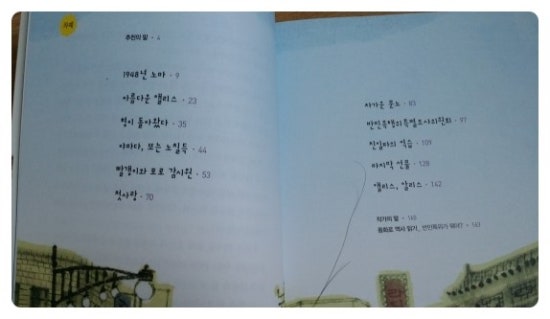 차례
추천의 말 · 4
1948년 노마 · 9
아름다운 앨리스 · 23
형이 돌아왔다 · 35
야마다, 또는 노질득 · 44
빨갱이와 포로 감시원 · 53
첫사랑 · 70
차가운 분노 · 83
반민족행위특별조사위원회 · 97
친일파의 역습 · 109
마지막 선물 · 128
앨리스, 알리스 · 142
작가의 말 · 160
동화로 역사 읽기, 반민특위가 뭐야? · 163